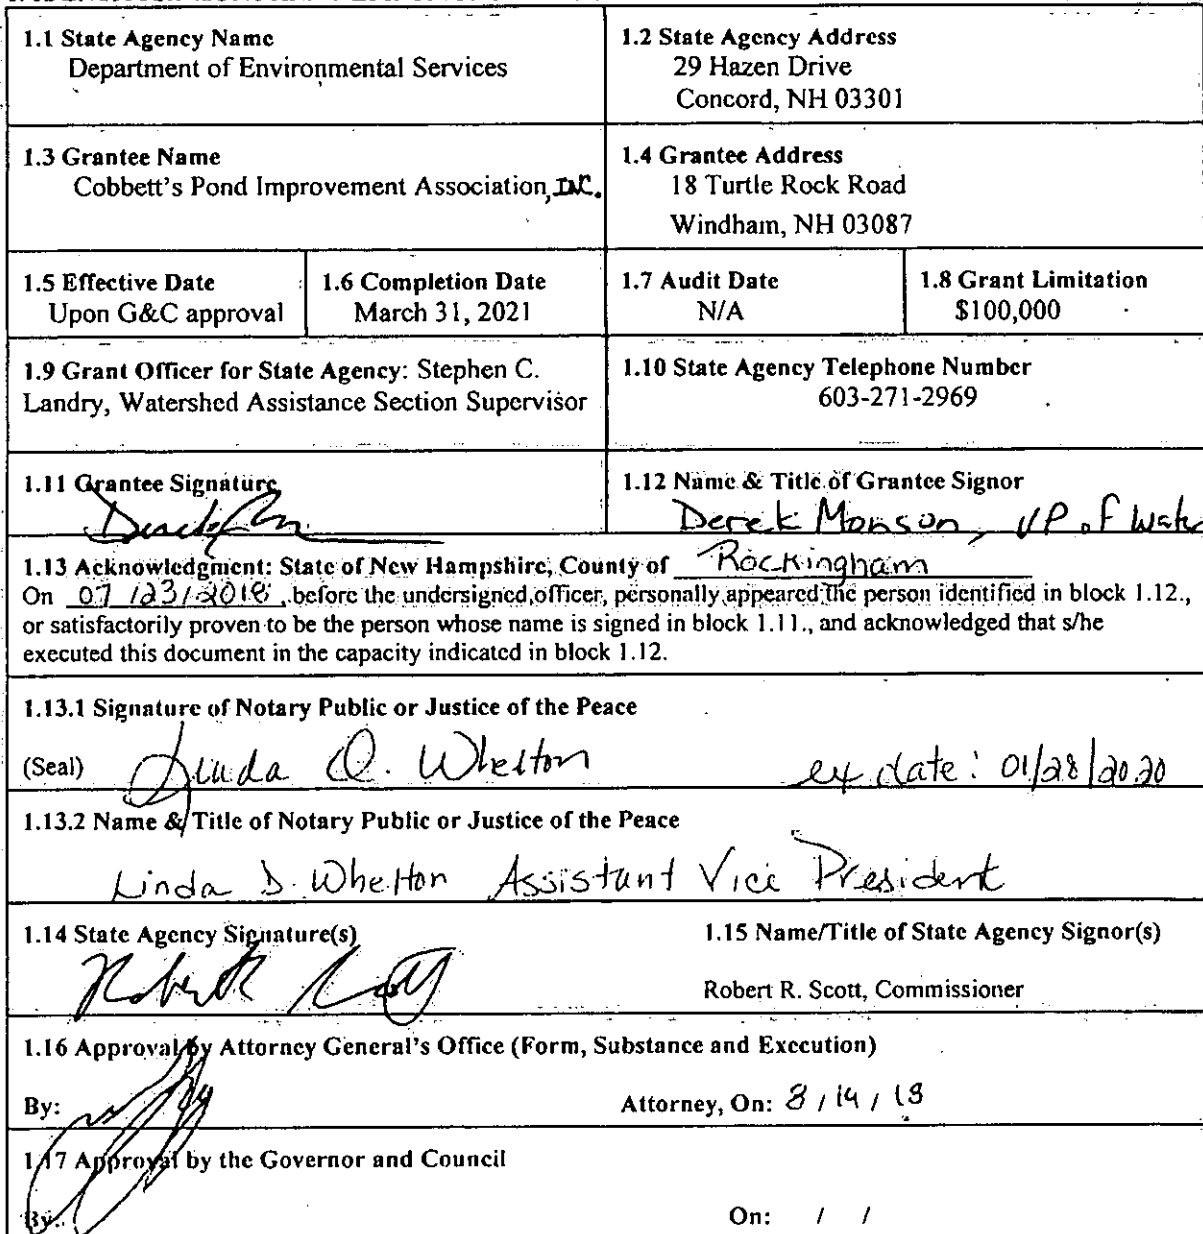 1.1 State Agency Name
Department of Environmental Services
1.2 State Agency Address
29 Hazen Drive
Concord, NH 03301
1.3 Grantee Name
Cobbett's Pond Improvement Association, INC.
1.4 Grantee Address
18 Turtle Rock Road
Windham, NH 03087
1.5 Effective Date
Upon G&C approval
1.6 Completion Date
March 31, 2021
1.7 Audit Date
N/A
1.8 Grant Limitation
$100,000
1.9 Grant Officer for State Agency: Stephen C.
Landry, Watershed Assistance Section Supervisor
1.10 State Agency Telephone Number
603-271-2969
1.11 Grantee Signature
1.12 Name & Title of Grantee Signor
Derek Monson, VP of Wate
1.13 Acknowledgment: State of New Hampshire, County of Rockingham
On 07/23/2018, before the undersigned officer, personally appeared the person identified in block 1.12.,
or satisfactorily proven to be the person whose name is signed in block 1.11., and acknowledged that s/he
executed this document in the capacity indicated in block 1.12.
1.13.1 Signature of Notary Public or Justice of the Peace
(Seal) Linda D. Whelton ex date: 01/28/2020
1.13.2 Name & Title of Notary Public or Justice of the Peace
Linda D. Whelton Assistant Vice President
1.14 State Agency Signature(s)
Robert Scott
1.15 Name/Title of State Agency Signor(s)
Robert R. Scott, Commissioner
1.16 Approval by Attorney General's Office (Form, Substance and Execution)
By:
Attorney, On: 8/14/18
1.17 Approval by the Governor and Council
By:
On: / /